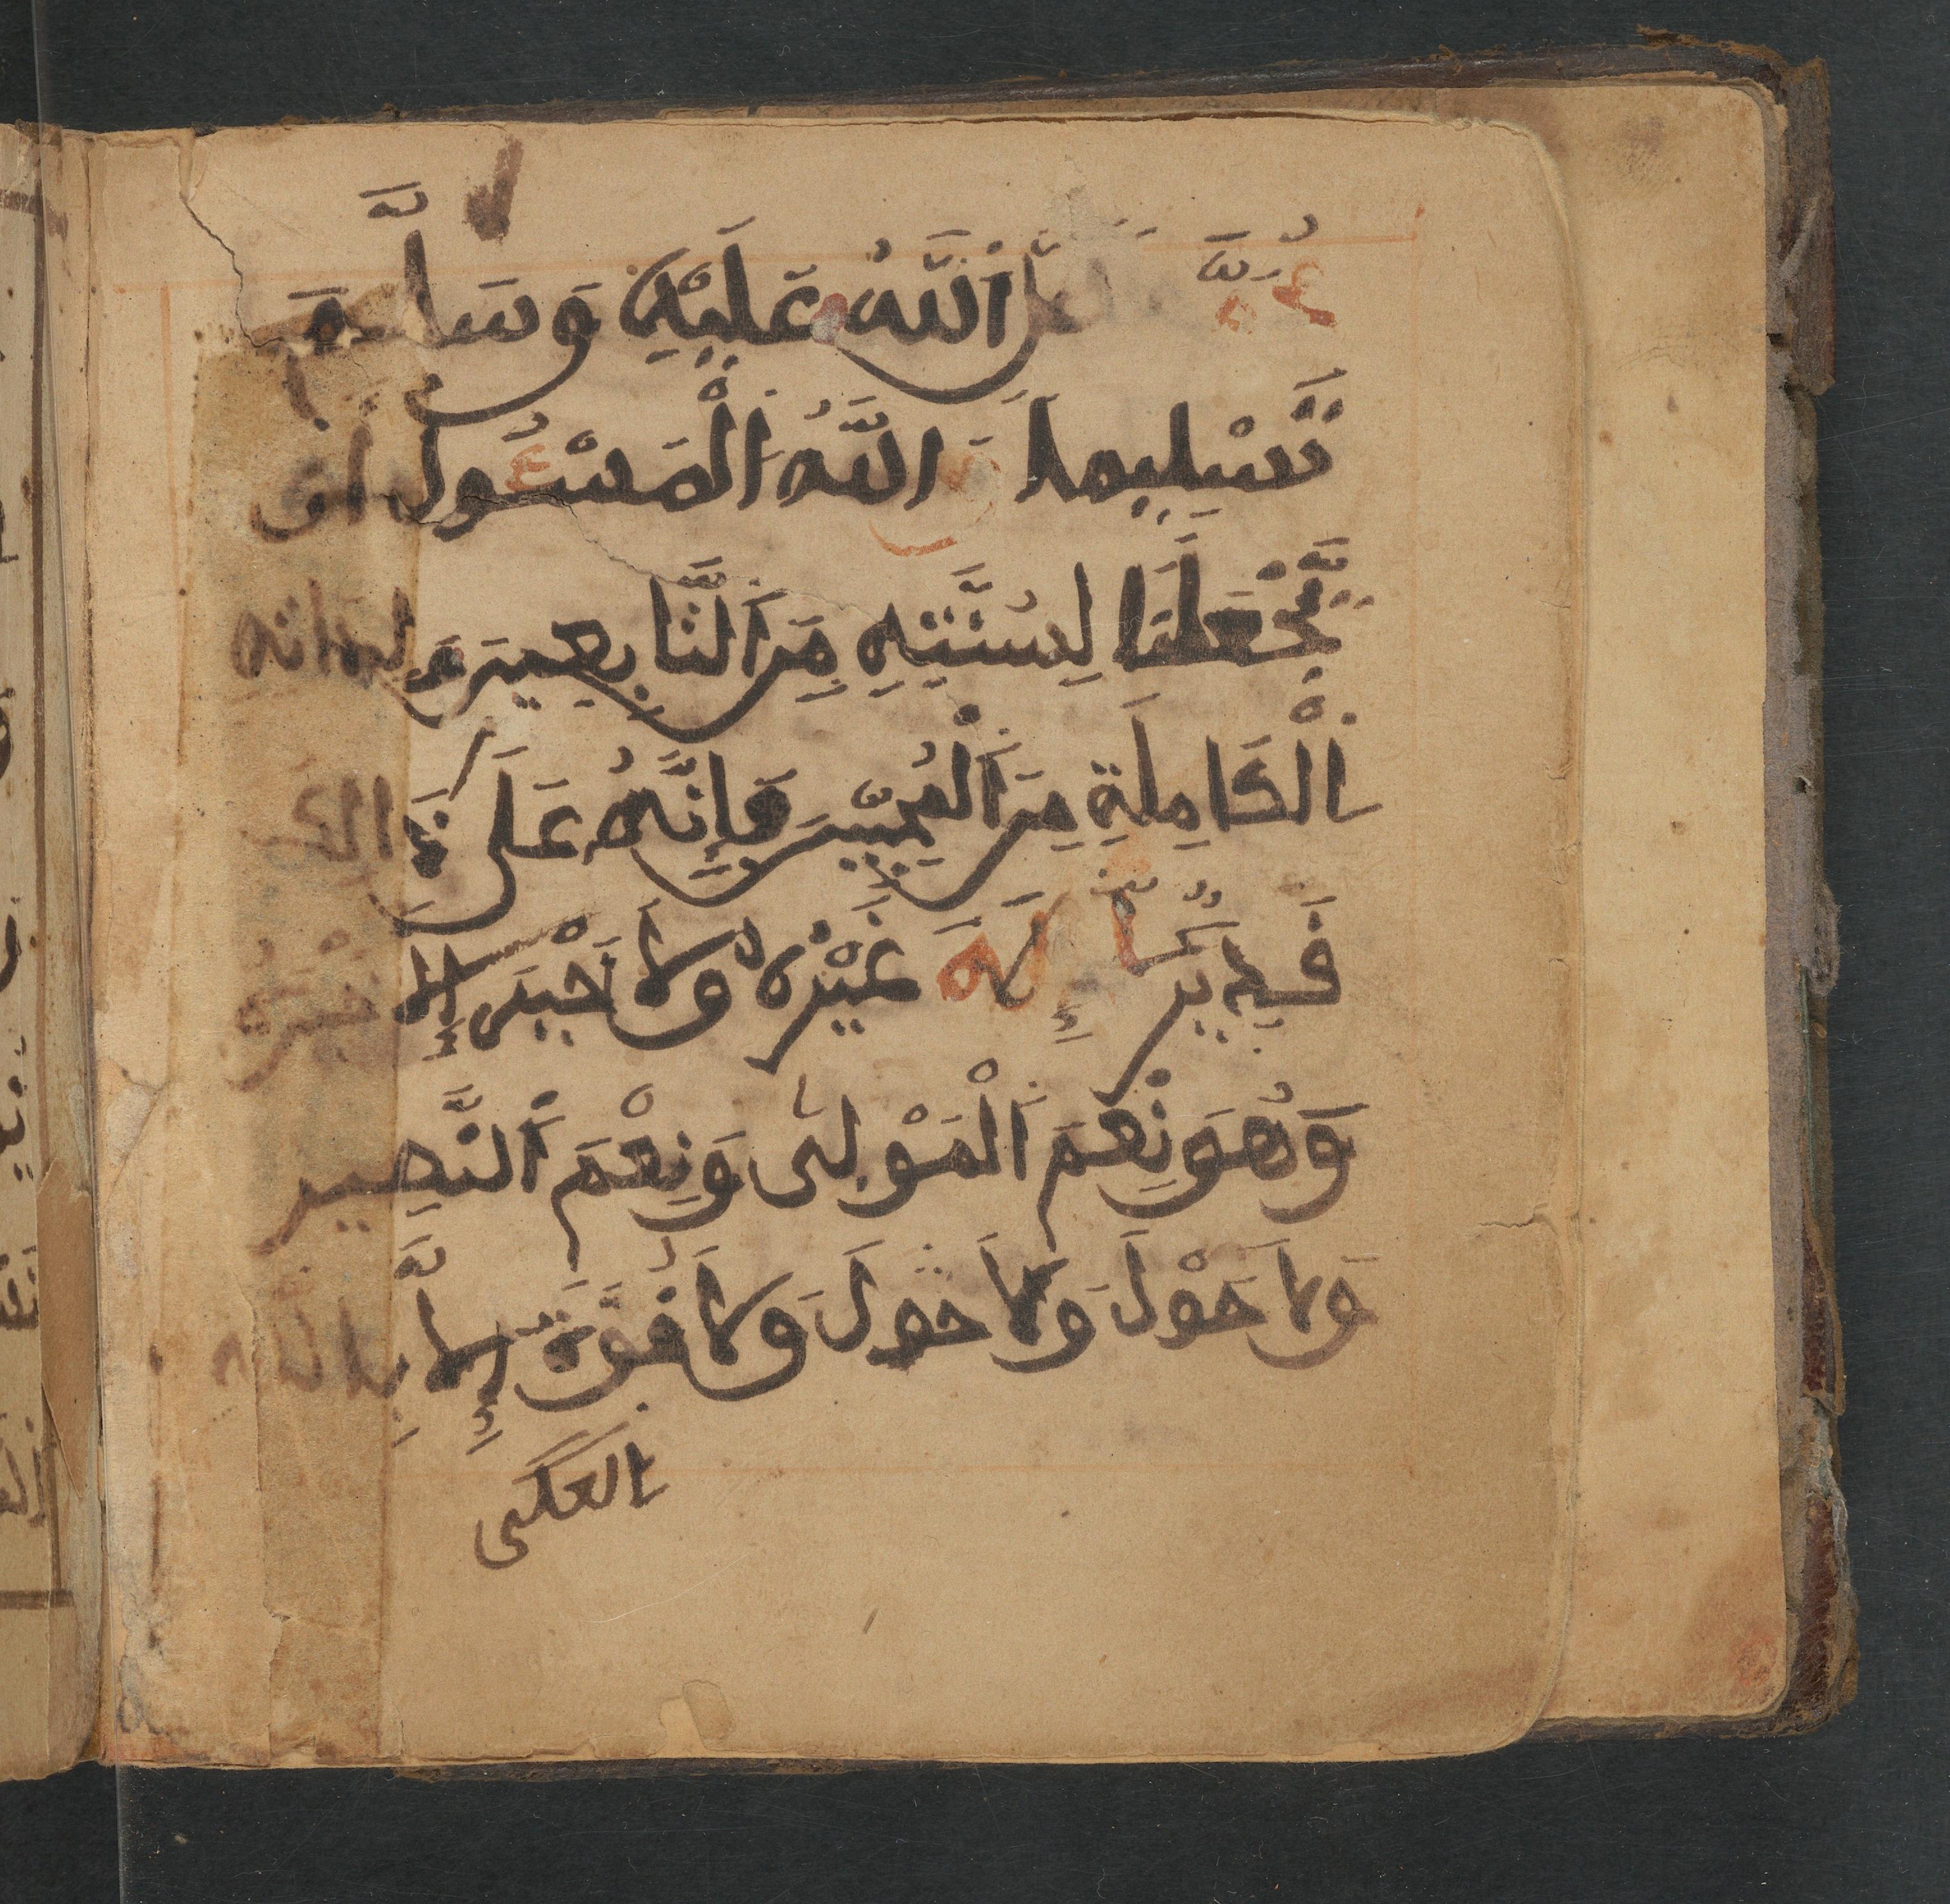 صلى اللَّهُ عَلَيْهِ وَسَلَّمَ
تَسْلِيماً اللَّهُ الْمَسْئُولُ أن
يَّجْعَلَنَا لِسُنَّتِهِ مِنَ التَّابِعِينَ وَلذاته
الْكَامِلَةِ مِنَ الْمُحِبِّينَ فَإِنَّهُ عَلَى ذَالك
قَدِيرٌ لَا إِلَهَ غَيْرُهُ وَلَا خَيْرَ إِلَّا خَيْرُهُ
وَهُوَ نِعْمَ الْمَوْلَى وَنِعْمَ النَّصِير
وَلَا حَوْلَ وَلَا حَوْلَ وَلَا قُوَّةَ إِلَّا بِاللَّه
العلى